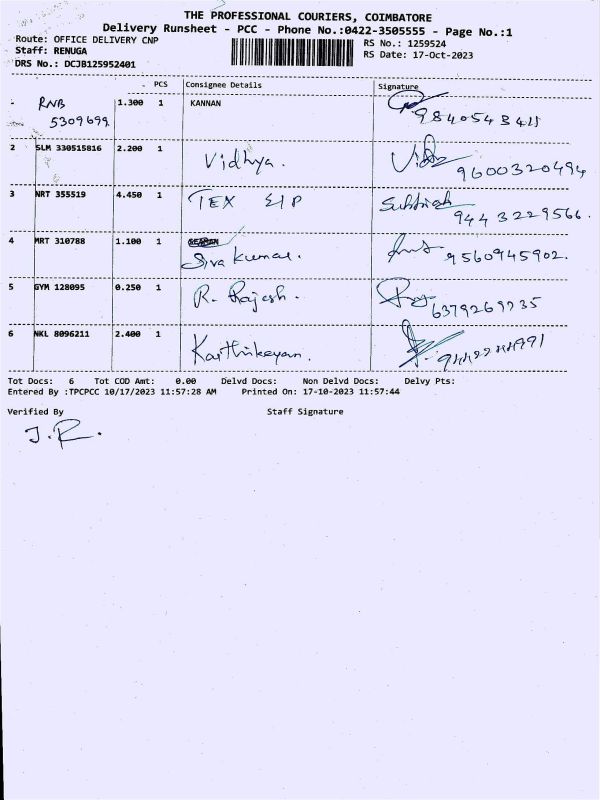 THE PROFESSIONAL COURIERS, COIMBATORE
Delivery Runsheet - PCC - Phone No.:0422-3505555 - Page No.:1
Route: OFFICE DELIVERY CNP
RS No.: 1259524
Staff: RENUGA
RS Date: 17-Oct-2023
DRS No.: DCJB125952401
PCS Consignee Details Signature
RNB 1.300 1 KANNAN
5309699 9840543411
2 SLM 330515816 2.200 1 Vidhya.
9600320494
3 NRT 355519 4.450 1 TEX
9443229566.
4 MRT 310788 1.100 1
Siva kumar. 9560945902.
5 GYM 128095 0.250 1 R. Rajesh.
6379269235
6 NKL 8096211 2.400 1 Karthikeyan.
Tot Docs: 6 Tot COD Amt: 0.00 Delvd Docs: Non Delvd Docs: Delvy Pts:
Entered By :TPCPCC 10/17/2023 11:57:28 AM Printed On: 17-10-2023 11:57:44
Verified By Staff Signature
J.R.